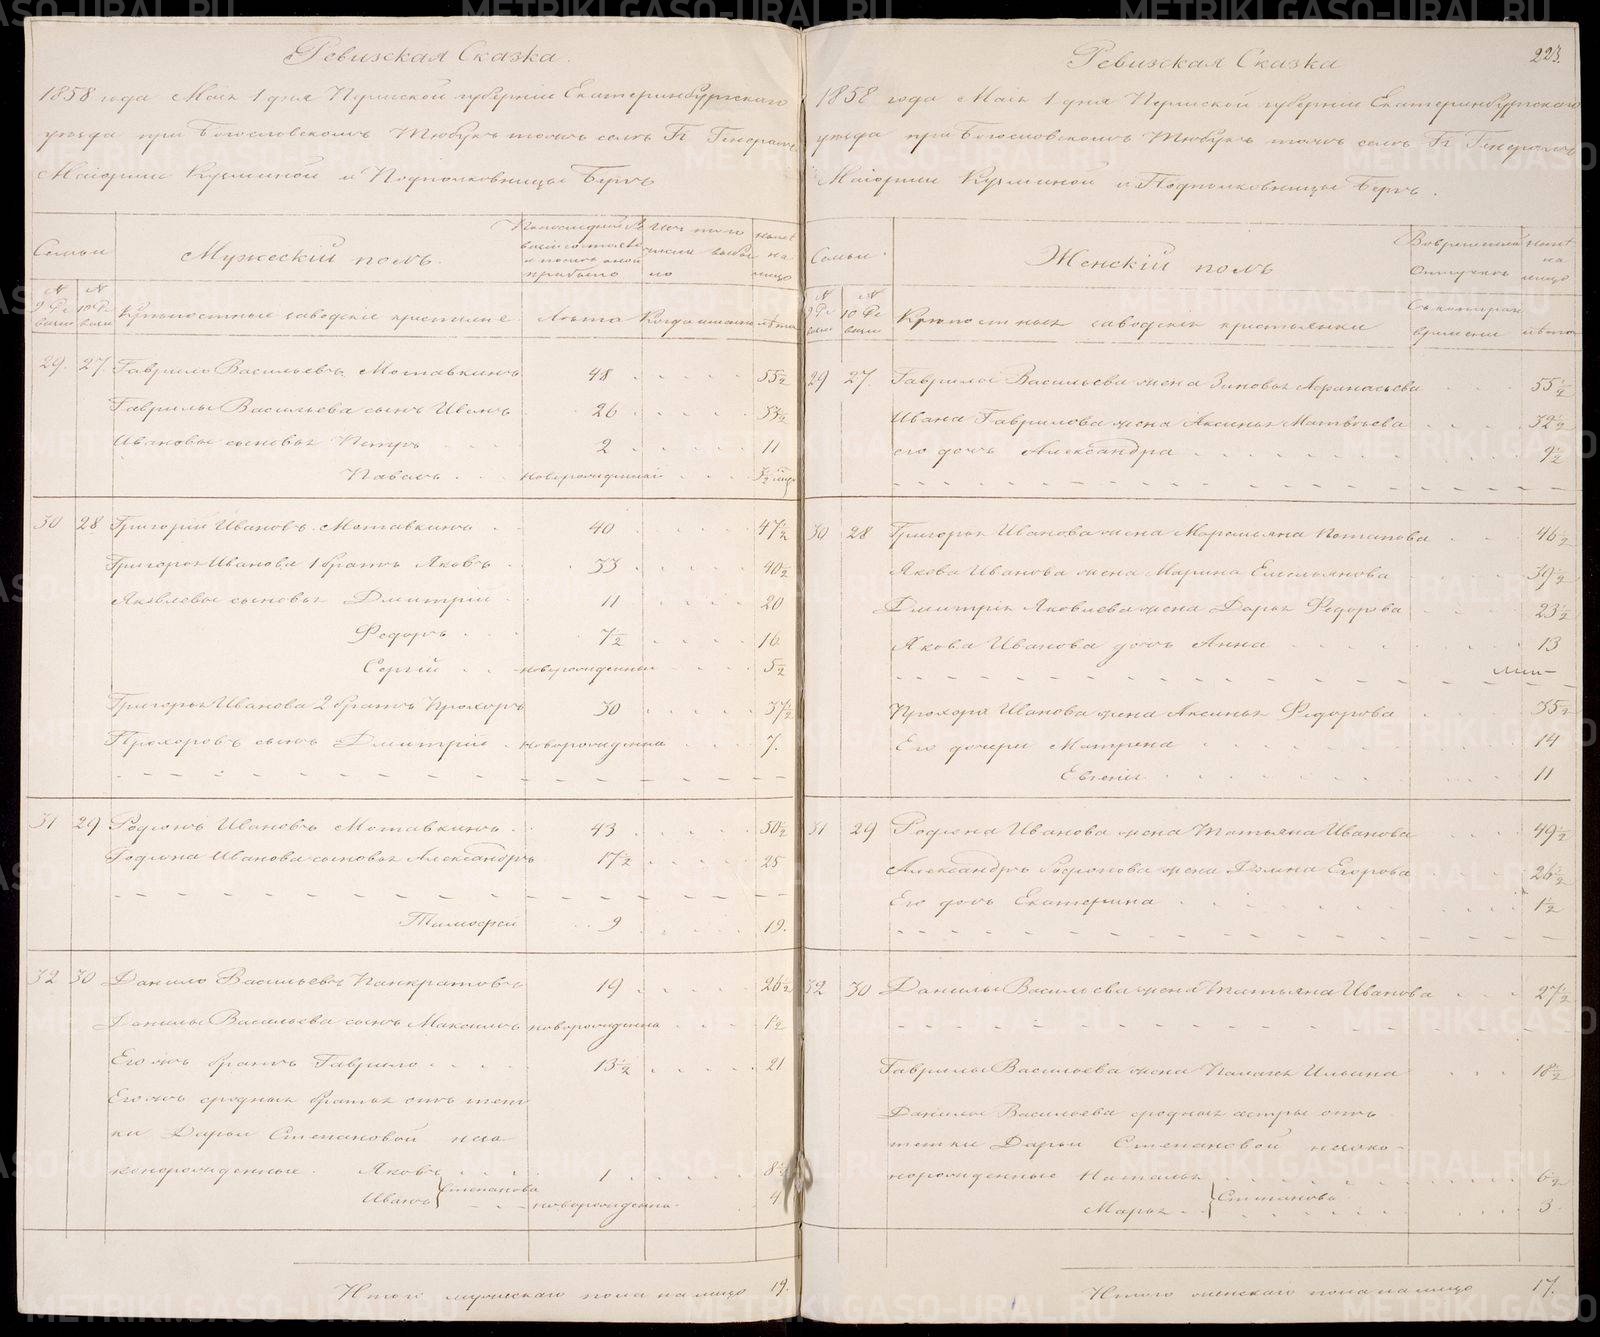 Ревизская Сказка.
1858 года Маія 1 дня Пермской губерніи Екатеринбургскаго
уѣзда при Богословскомъ Тюбукъ тожъ селѣ Гг. Генералъ
Маіорши Кузьминой и Подполковницы Бергъ
Семьи
Мужескій полъ.
По последней Ре
визіи состояло
и после оной
прибыло
Изъ того
числа выбы
ло
Ныне
на
лицо
№ 9 Ре
визіи
№ 10 Ре
визіи
Крѣпостные заводскіе крестьяне
Лѣта
Когда именно
лѣта
29. 27. Гаврило Васильевъ Мотавкинъ 48 55½
Гаврилы Васильева сынъ Иванъ 26 33½
Ивановы сыновья Петръ 2 11
Павелъ новорожденный
30 28 Григорій Ивановъ Мотавкинъ 40 47½
Григорья Иванова 1 братъ Яковъ 33 40½
Яковлевы сыновья Дмитрій 11 20
Федоръ 7½ 16
Сергѣй новорожденный 5½
Григорья Иванова 2 братъ Прохоръ 30 37½
Прохоровъ сынъ Дмитрій новорожденны 7.
31 29 Родіонъ Ивановъ Мотавкинъ 43 50½
Родіона Иванова сыновья Александръ 17½ 25
Тимофей 9 19.
32 30 Данило Васильевъ Панкратовъ 19 26½
Данилы Васильева сынъ Максимъ новорожденны 1½
Его жъ братъ Гаврило 13½ 21
Его жъ сродныя братья отъ тет
ки Дарьи Степановой неза
конорожденные. Яковъ 1 8½
Иванъ Степанова новорожденны 4
Итого мужескаго пола на лицо 19.
223.
Ревизская Сказка
1858 года Маія 1 дня Пермской губерніи Екатеринбургскаго
уѣзда при Богословскомъ Тюбукъ тожъ селѣ Гг. Генералъ
Маіорши Кузьминой и Подполковницы Бергъ.
Семьи.
Женскій полъ
Во временной
отлучкѣ
Ныне
на
лицо
№ 9 Ре
визіи
№ 10 Ре
визіи
Крѣпостныя заводскія крестьянки
Съ котораго
времени
лѣта
29 27. Гаврилы Васильева жена Зиновья Афанасьева 55½
Ивана Гаврилова жена Аксинья Матвѣева 32½
его дочь Александра 9½
30 28 Григорья Иванова жена Маремьяна Потапова 46½
Якова Иванова жена Марина Емельянова 39½
Дмитрія Яковлева жена Дарья Федорова 23½
Якова Иванова дочь Анна 13
Прохора Иванова жена Аксинья Федорова 35½
Его дочери Матрена 14
Евгенія 11
31 29 Родіона Иванова жена Татьяна Иванова 49½
Александръ Родіонова жена Егорова 26½
Его дочь Екатерина 1½
32 30 Данилы Васильева жена Татьяна Иванова 27½
Гаврилы Васильева жена Палагея Ильина 18½
Данилы Васильева сродныя сестры отъ
тетки Дарьи Степановой незако-
норожденные Наталья 6½
Марья Степановы 3
Итого женскаго пола на лицо 17.
METRIKI.GASO-URAL.RU